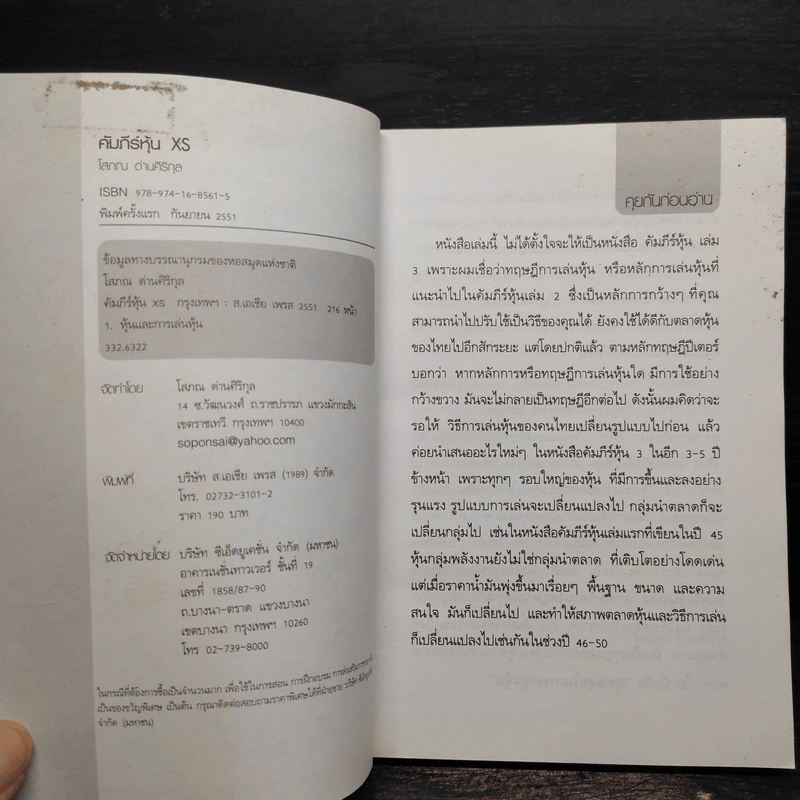 คัมภีร์หุ้น XS
โสภณ ด่านศิริกุล
ISBN 978-974-16-8561-5
พิมพ์ครั้งแรก กันยายน 2551
ข้อมูลทางบรรณานุกรมของหอสมุดแห่งชาติ
โสภณ ด่านศิริกุล
คัมภีร์หุ้น XS กรุงเทพฯ : ส.เอเซีย เพรส 2551 216 หน้า
1. หุ้นและการเล่นหุ้น
332.6322
จัดทำโดย โสภณ ด่านศิริกุล
14 ซ.วัฒนวงศ์ ถ.ราชปรารภ แขวงมักกะสัน
เขตราชเทวี กรุงเทพฯ 10400
soponsai@yahoo.com
พิมพ์ที่ บริษัท ส.เอเซีย เพรส (1989) จำกัด
โทร. 02732-3101-2
ราคา 190 บาท
จัดจำหน่ายโดย บริษัท ซีเอ็ดยูเคชั่น จำกัด (มหาชน)
อาคารเนชั่นทาวเวอร์ ชั้นที่ 19
เลขที่ 1858/87-90
ถ.บางนา-ตราด แขวงบางนา
เขตบางนา กรุงเทพฯ 10260
โทร 02-739-8000
ในกรณีที่ต้องการซื้อเป็นจำนวนมาก เพื่อใช้ในการสอน การฝึกอบรม การส่งเสริมการขาย หรือ
เป็นของขวัญพิเศษ เป็นต้น กรุณาติดต่อสอบถามราคาพิเศษได้ที่ฝ่ายขาย บริษัท ซีเอ็ดยูเคชั่น
จำกัด (มหาชน)
คุยกันก่อนอ่าน
หนังสือเล่มนี้ ไม่ได้ตั้งใจจะให้เป็นหนังสือ คัมภีร์หุ้น เล่ม
3 เพราะผมเชื่อว่าทฤษฎีการเล่นหุ้น หรือหลักการเล่นหุ้นที่
แนะนำไปในคัมภีร์หุ้นเล่ม 2 ซึ่งเป็นหลักการกว้างๆ ที่คุณ
สามารถนำไปปรับใช้เป็นวิธีของคุณได้ ยังคงใช้ได้ดีกับตลาดหุ้น
ของไทยไปอีกสักระยะ แต่โดยปกติแล้ว ตามหลักทฤษฎีปีเตอร์
บอกว่า หากหลักการหรือทฤษฎีการเล่นหุ้นใด มีการใช้อย่าง
กว้างขวาง มันจะไม่กลายเป็นทฤษฎีอีกต่อไป ดังนั้นผมคิดว่าจะ
รอให้ วิธีการเล่นหุ้นของคนไทยเปลี่ยนรูปแบบไปก่อน แล้ว
ค่อยนำเสนออะไรใหม่ๆ ในหนังสือคัมภีร์หุ้น 3 ในอีก 3-5 ปี
ข้างหน้า เพราะทุกๆ รอบใหญ่ของหุ้น ที่มีการขึ้นและลงอย่าง
รุนแรง รูปแบบการเล่นจะเปลี่ยนแปลงไป กลุ่มนำตลาดก็จะ
เปลี่ยนกลุ่มไป เช่นในหนังสือคัมภีร์หุ้นเล่มแรกที่เขียนในปี 45
หุ้นกลุ่มพลังงานยังไม่ใช่กลุ่มนำตลาด ที่เติบโตอย่างโดดเด่น
แต่เมื่อราคาน้ำมันพุ่งขึ้นมาเรื่อยๆ พื้นฐาน ขนาด และความ
สนใจ มันก็เปลี่ยนไป และทำให้สภาพตลาดหุ้นและวิธีการเล่น
ก็เปลี่ยนแปลงไปเช่นกันในช่วงปี 46-50